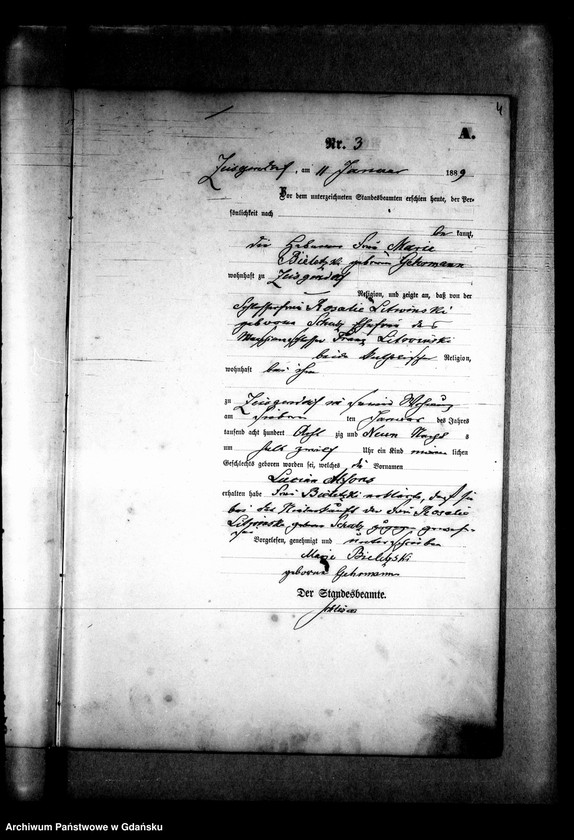 4
A.
Nr. 3
Zeisgendorf, am 11 Januar 1889
Vor dem unterzeichneten Standesbeamten erschien heute, der Per-
sönlichkeit nach
be kannt,
die Hebamme Frau Marie
Bieletzki geborene Gehrmann
wohnhaft zu Zeisgendorf
Religion, und zeigte an, daß von der
Schlosserfrau Rosalie Litwinski
geborene Schulz Ehefrau des
Franz Litwinski
beide katholischer Religion,
wohnhaft bei ihm
zu Zeisgendorf in seiner Wohnung
am sieben ten Januar des Jahres
tausend acht hundert Acht zig und Neun Nachts
um halb zwölf Uhr ein Kind männ lichen
Geschlechts geboren worden sei, welches die Vornamen
Lucian Alfons
erhalten habe Frau Bieletzki erklärte, daß sie
bei der Niederkunft der Frau Rosalie
Litwinski geborene Schulz zugegen gewe-
sen
Vorgelesen, genehmigt und unterschrieben
Marie Bieletzki
geborene Gehrmann
Der Standesbeamte.
Archiwum Państwowe w Gdańsku